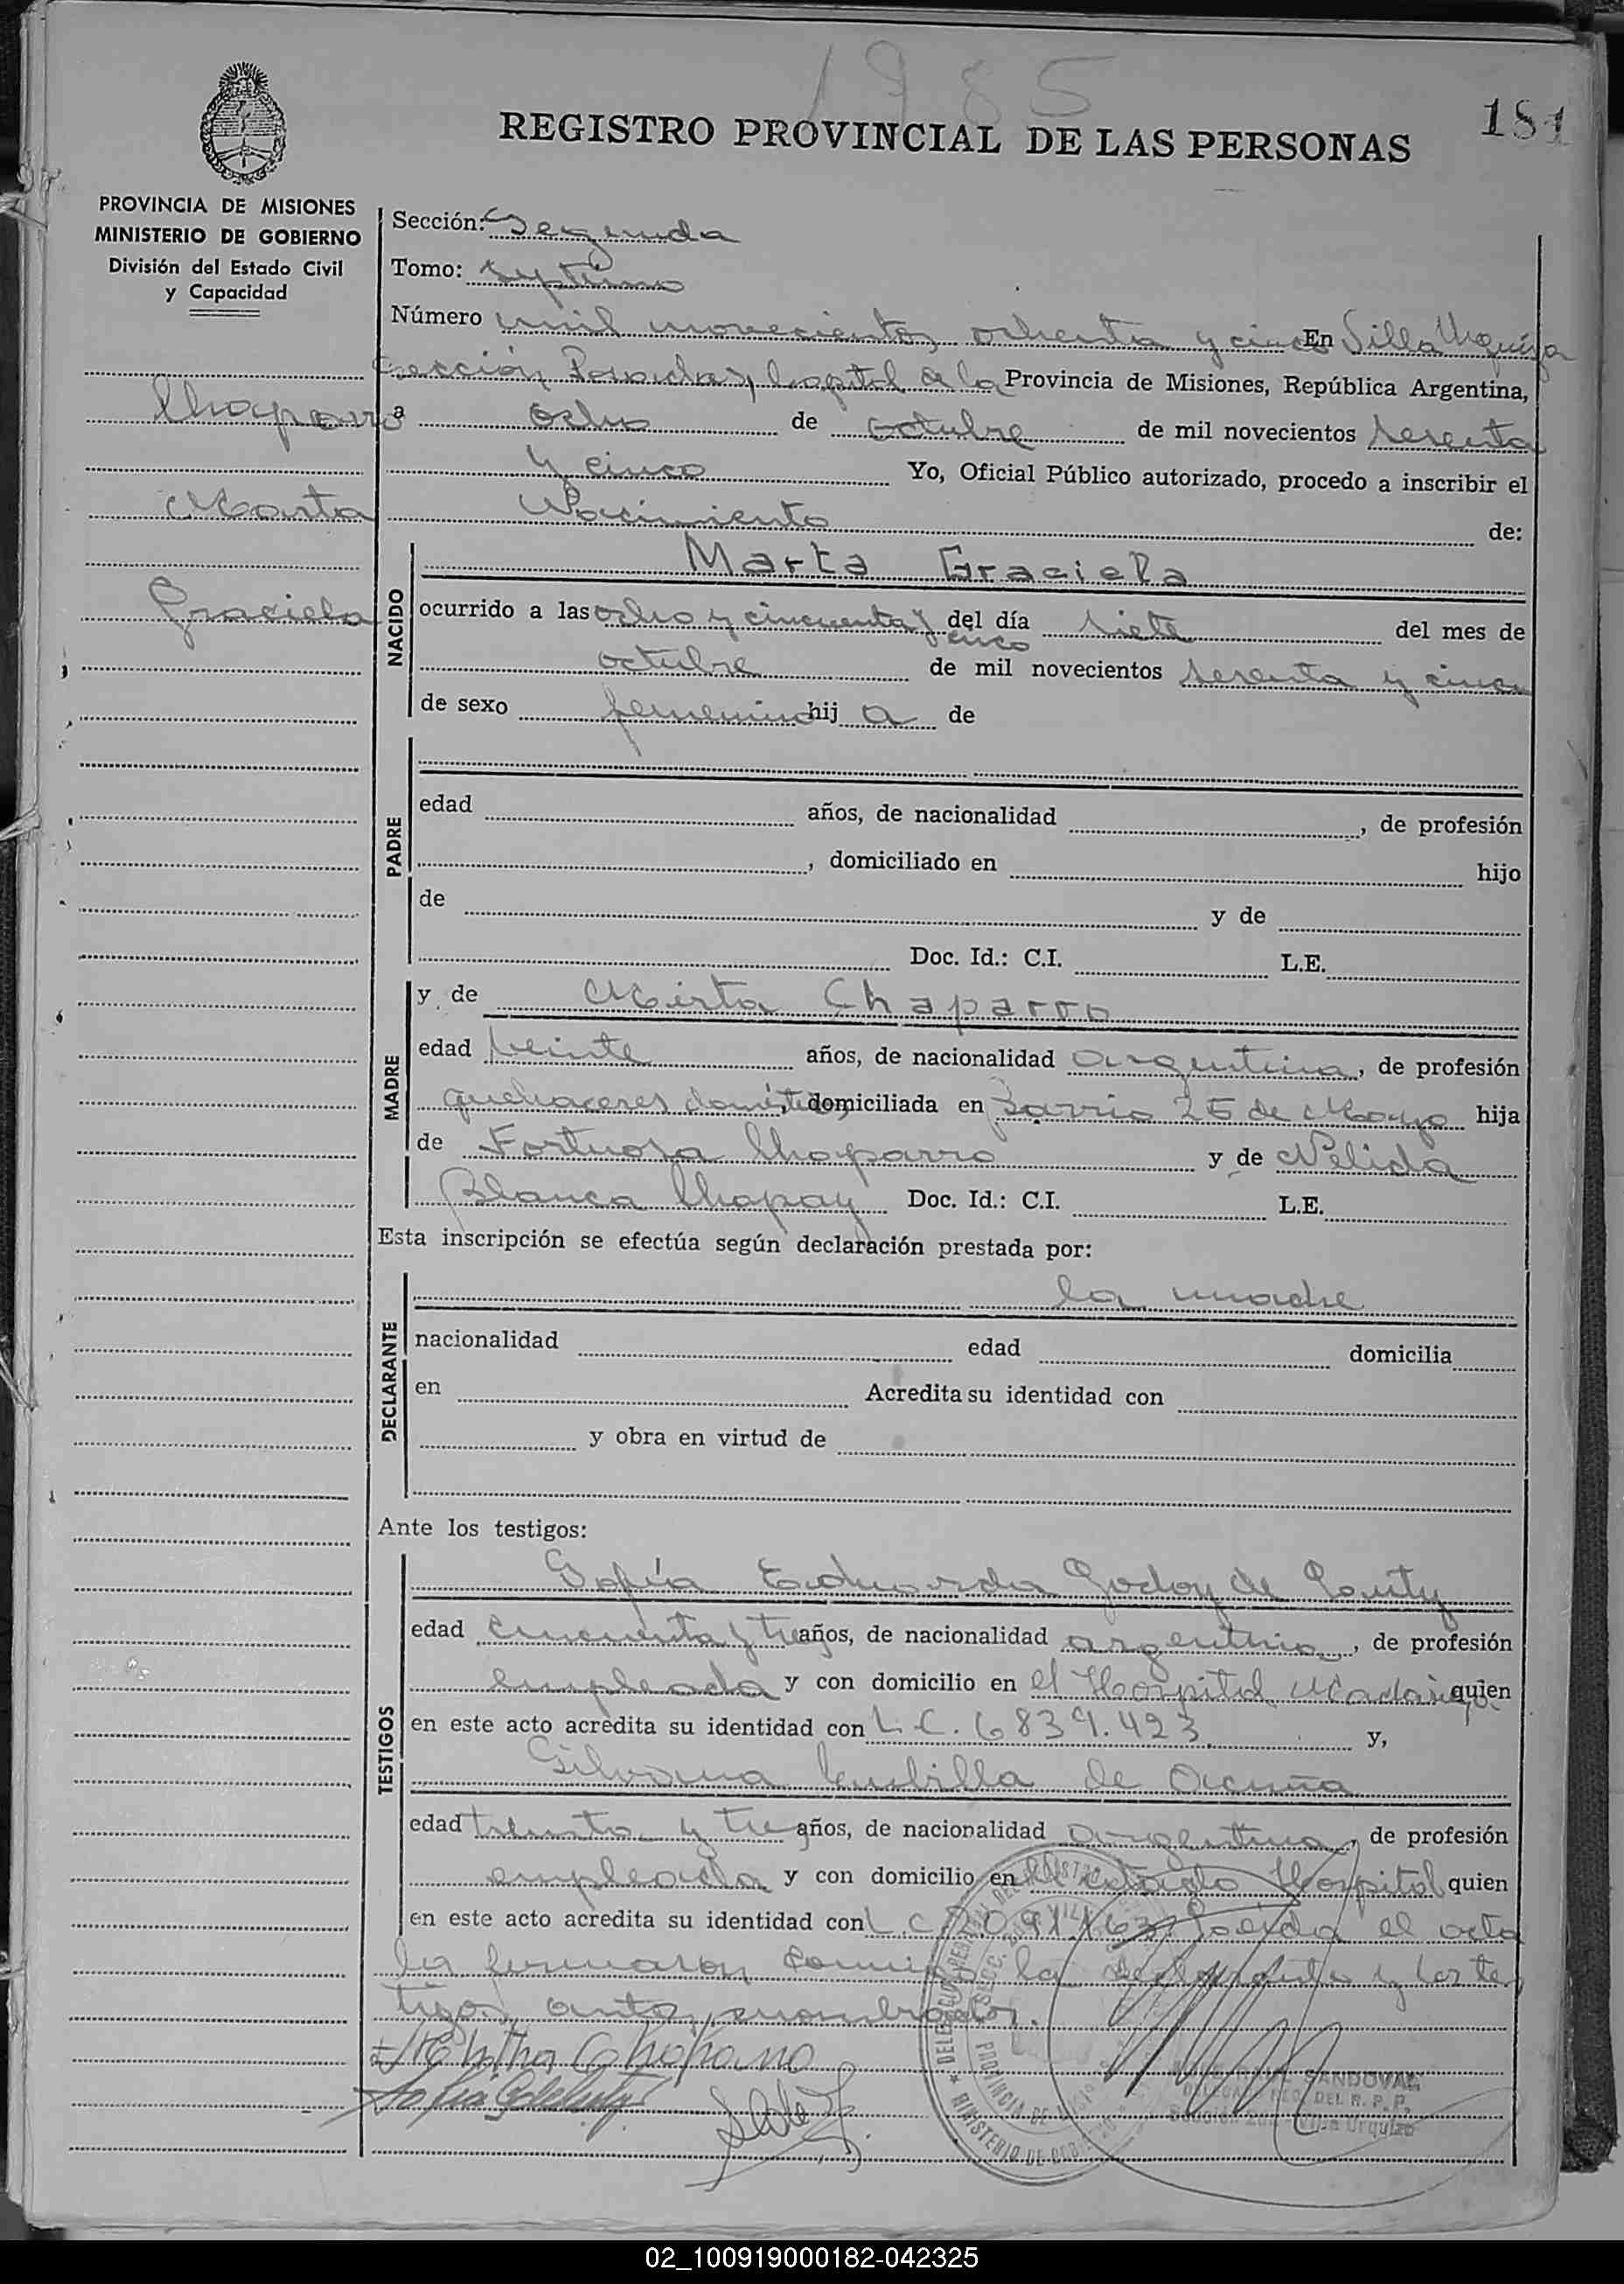 1985
181
REGISTRO PROVINCIAL DE LAS PERSONAS
PROVINCIA DE MISIONES
MINISTERIO DE GOBIERNO
División del Estado Civil
y Capacidad
Chaparro
Marta
Graciela
Sección: Segunda
Tomo: septimo
Número mil novecientos ochenta y cinco En Villa Urquiza
sección Posadas, capital de la Provincia de Misiones, República Argentina,
a ocho de octubre de mil novecientos sesenta
y cinco Yo, Oficial Público autorizado, procedo a inscribir el
Nacimiento de:
NACIDO
Marta Graciela
ocurrido a las ocho y cincuenta y cinco del día siete del mes de
octubre de mil novecientos sesenta y cinco
de sexo femenino hija de
PADRE
edad años, de nacionalidad , de profesión
, domiciliado en hijo
de y de
Doc. Id.: C.I. L.E.
MADRE
y de Mirta Chaparro
edad veinte años, de nacionalidad argentina, de profesión
quehaceres domésticos, domiciliada en Barrio 25 de Mayo hija
de Fortuosa Chaparro y de Nélida
Blanca Chapay Doc. Id.: C.I. L.E.
Esta inscripción se efectúa según declaración prestada por:
DECLARANTE
la madre
nacionalidad edad domicilia
en Acredita su identidad con
y obra en virtud de
Ante los testigos:
TESTIGOS
Sofía Eduarda Godoy de
edad cincuenta y tres años, de nacionalidad argentina, de profesión
empleada y con domicilio en el Hospital Madariaga quien
en este acto acredita su identidad con L.C. 6839.423 y,
Silvana de Acuña
edad treinta y tres años, de nacionalidad argentina, de profesión
empleada y con domicilio en el citado Hospital quien
en este acto acredita su identidad con L.C. Leída el acta
la firmaron conmigo la declarante y los tes
tigos antes nombrados.
Mirtha Chaparro
SANDOVAL
DEL R. P. P.
Villa Urquiza
02_100919000182-042325